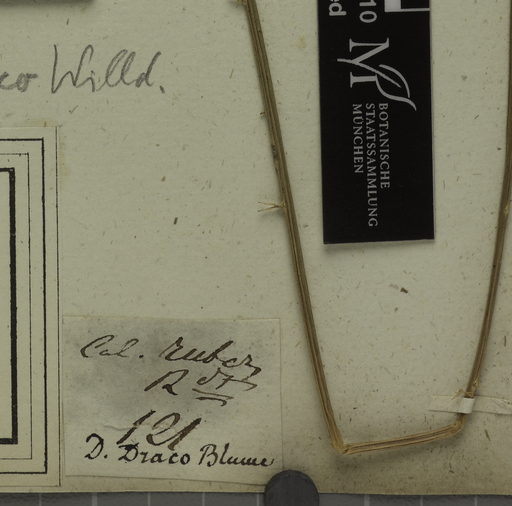 10
ed
BOTANISCHE
STAATSSAMMLUNG
MÜNCHEN
co Willd.
Cal. ruber
121
D. Draco Blume